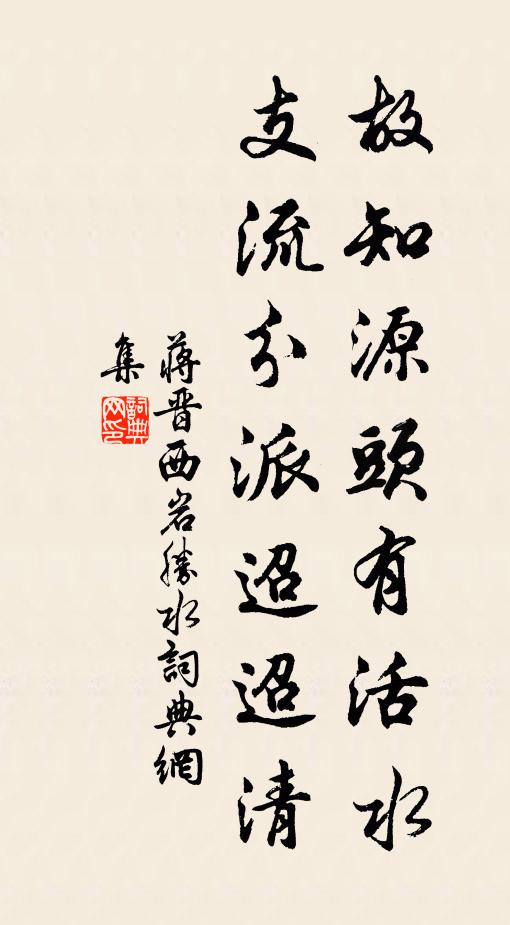 故知源頭有活水
支流分派迢迢清
蔣晋西岩勝水詞典網
集
詞典
网印